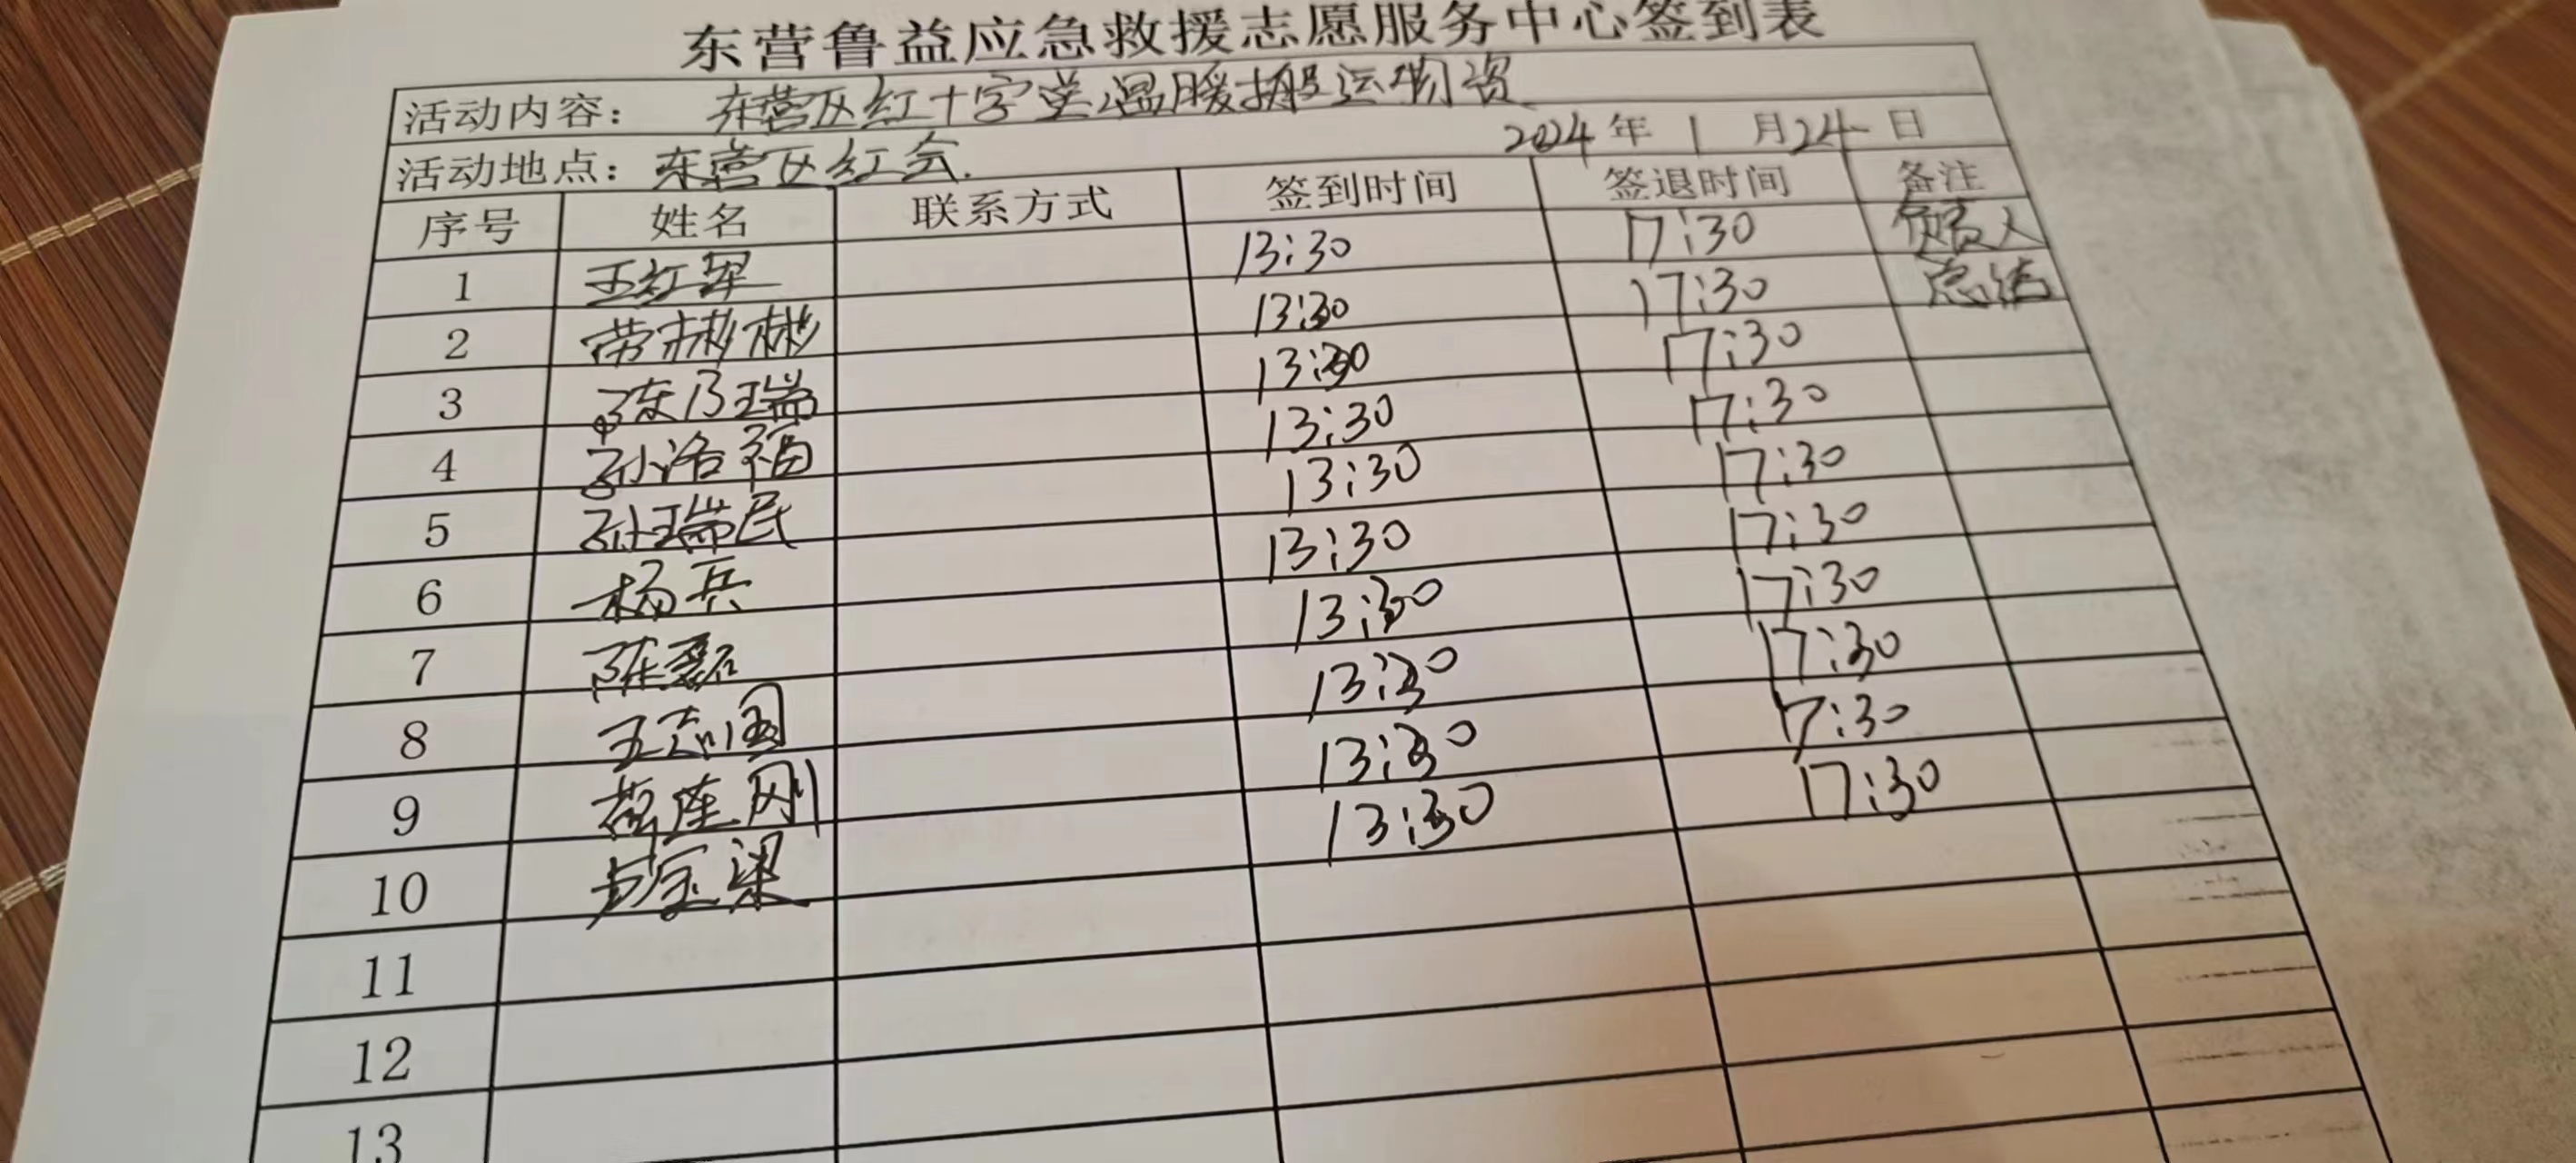 东营鲁益应急救援志愿服务中心签到表
活动内容： 东营区红十字送温暖搬运物资
2024 年 1 月 24 日
活动地点：东营区红会.
序号 姓名 联系方式 签到时间 签退时间 备注
1 王红军 13:30 17:30 负责人
2 常彬彬 13:30 17:30 总结
3 陈乃瑞 13:30 17:30
4 孙洛福 13:30 17:30
5 孙瑞民 13:30 17:30
6 杨兵 13:30 17:30
7 陈磊 13:30 17:30
8 王志国 13:30 17:30
9 13:30 17:30
10 卢宝梁 13:30 17:30
11
12
13